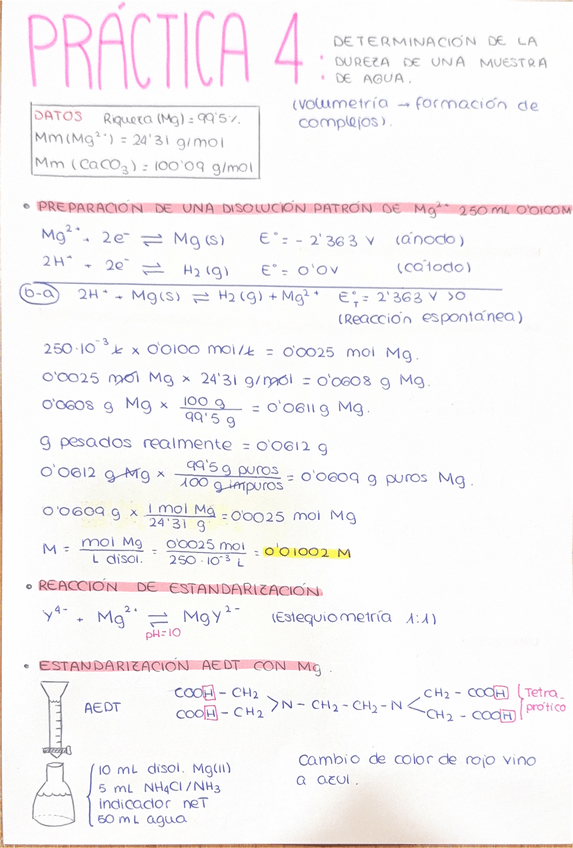 PRÁCTICA 4:
DETERMINACIÓN DE LA
DUREZA DE UNA MUESTRA
DE AGUA.
(volumetría → formación de
complejos).
DATOS Riqueza (Mg) = 99'5%
Mm (Mg²⁺) = 24'31 g/mol
Mm (CaCO₃) = 100'09 g/mol
• PREPARACIÓN DE UNA DISOLUCIÓN PATRÓN DE Mg²⁺ 250 mL 0'0100M
Mg²⁺ + 2e⁻ ⇌ Mg(s) E° = - 2'363 V (ánodo)
2H⁺ + 2e⁻ ⇌ H₂(g) E° = 0'0V (cátodo)
(b-a) 2H⁺ + Mg(s) ⇌ H₂(g) + Mg²⁺ E°T = 2'363 V >0
(Reacción espontánea)
250·10⁻³ L × 0'0100 mol/L = 0'0025 mol Mg.
0'0025 mol Mg × 24'31 g/mol = 0'0608 g Mg.
0'0608 g Mg × 100 g / 99'5 g = 0'0611 g Mg.
g pesados realmente = 0'0612 g
0'0612 g Mg × 99'5 g puros / 100 g impuros = 0'0609 g puros Mg.
0'0609 g × 1 mol Mg / 24'31 g = 0'0025 mol Mg
M = mol Mg / L disol. = 0'0025 mol / 250·10⁻³ L = 0'01002 M
• REACCIÓN DE ESTANDARIZACIÓN
Y⁴⁻ + Mg²⁺ ⇌ MgY²⁻ (Estequiometría 1:1)
pH=10
• ESTANDARIZACIÓN AEDT CON Mg.
AEDT
COOH - CH₂
COOH - CH₂
>N - CH₂ - CH₂ - N<
CH₂ - COOH
CH₂ - COOH
Tetra-
prótico
10 mL disol. Mg(II)
5 mL NH₄Cl/NH₃
indicador neT
50 mL agua
Cambio de color de rojo vino
a azul.